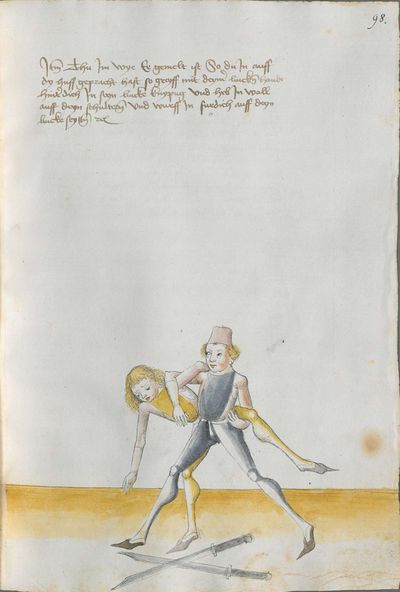 98.
Itm Thu Im wye Er gemelt ist So du In auff
dy huff gepracht hast so greyff mit deiner lincken hand
hind dich In sein lincke knypug Vnd heb In woll
auff deyn schultern Vnd wurff In fur dich auff deyn
lincke seytten